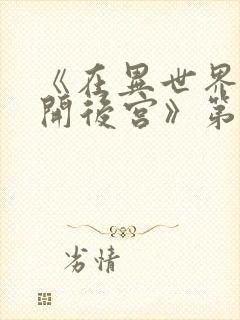 《在異世界
開後宮》第
劣情